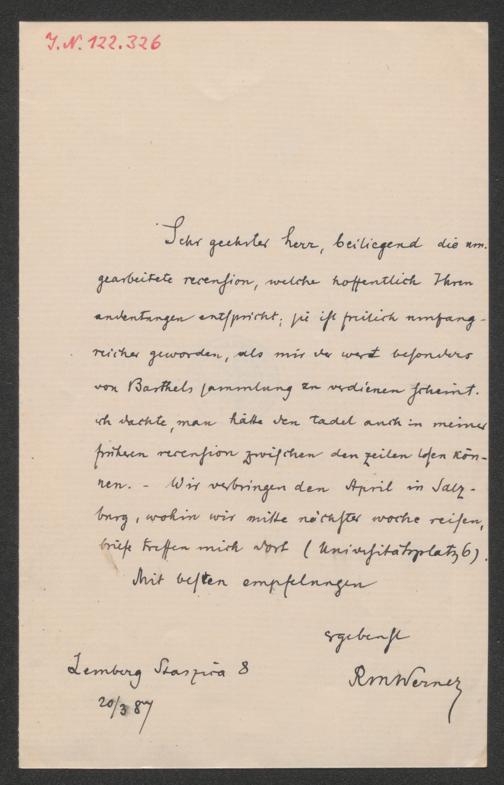 J.N. 122.326
Sehr geehrter herr, beiliegend die um-
gearbeitete recension, welche hoffentlich Ihren
andeutungen entspricht; sie ist freilich umfang-
reicher geworden, als mir der wert besonders
von Barthels sammlung zu verdienen scheint.
ich dachte, man hätte den tadel auch in meiner
früheren recension zwischen den zeilen lesen kön-
nen. - Wir verbringen den April in Salz-
burg, wohin wir mitte nächster woche reisen,
briefe treffen mich dort (Universitätsplatz 6).
Mit besten empfelungen
ergebenst
RMWerner
Lemberg Staszica 8
20/3 87